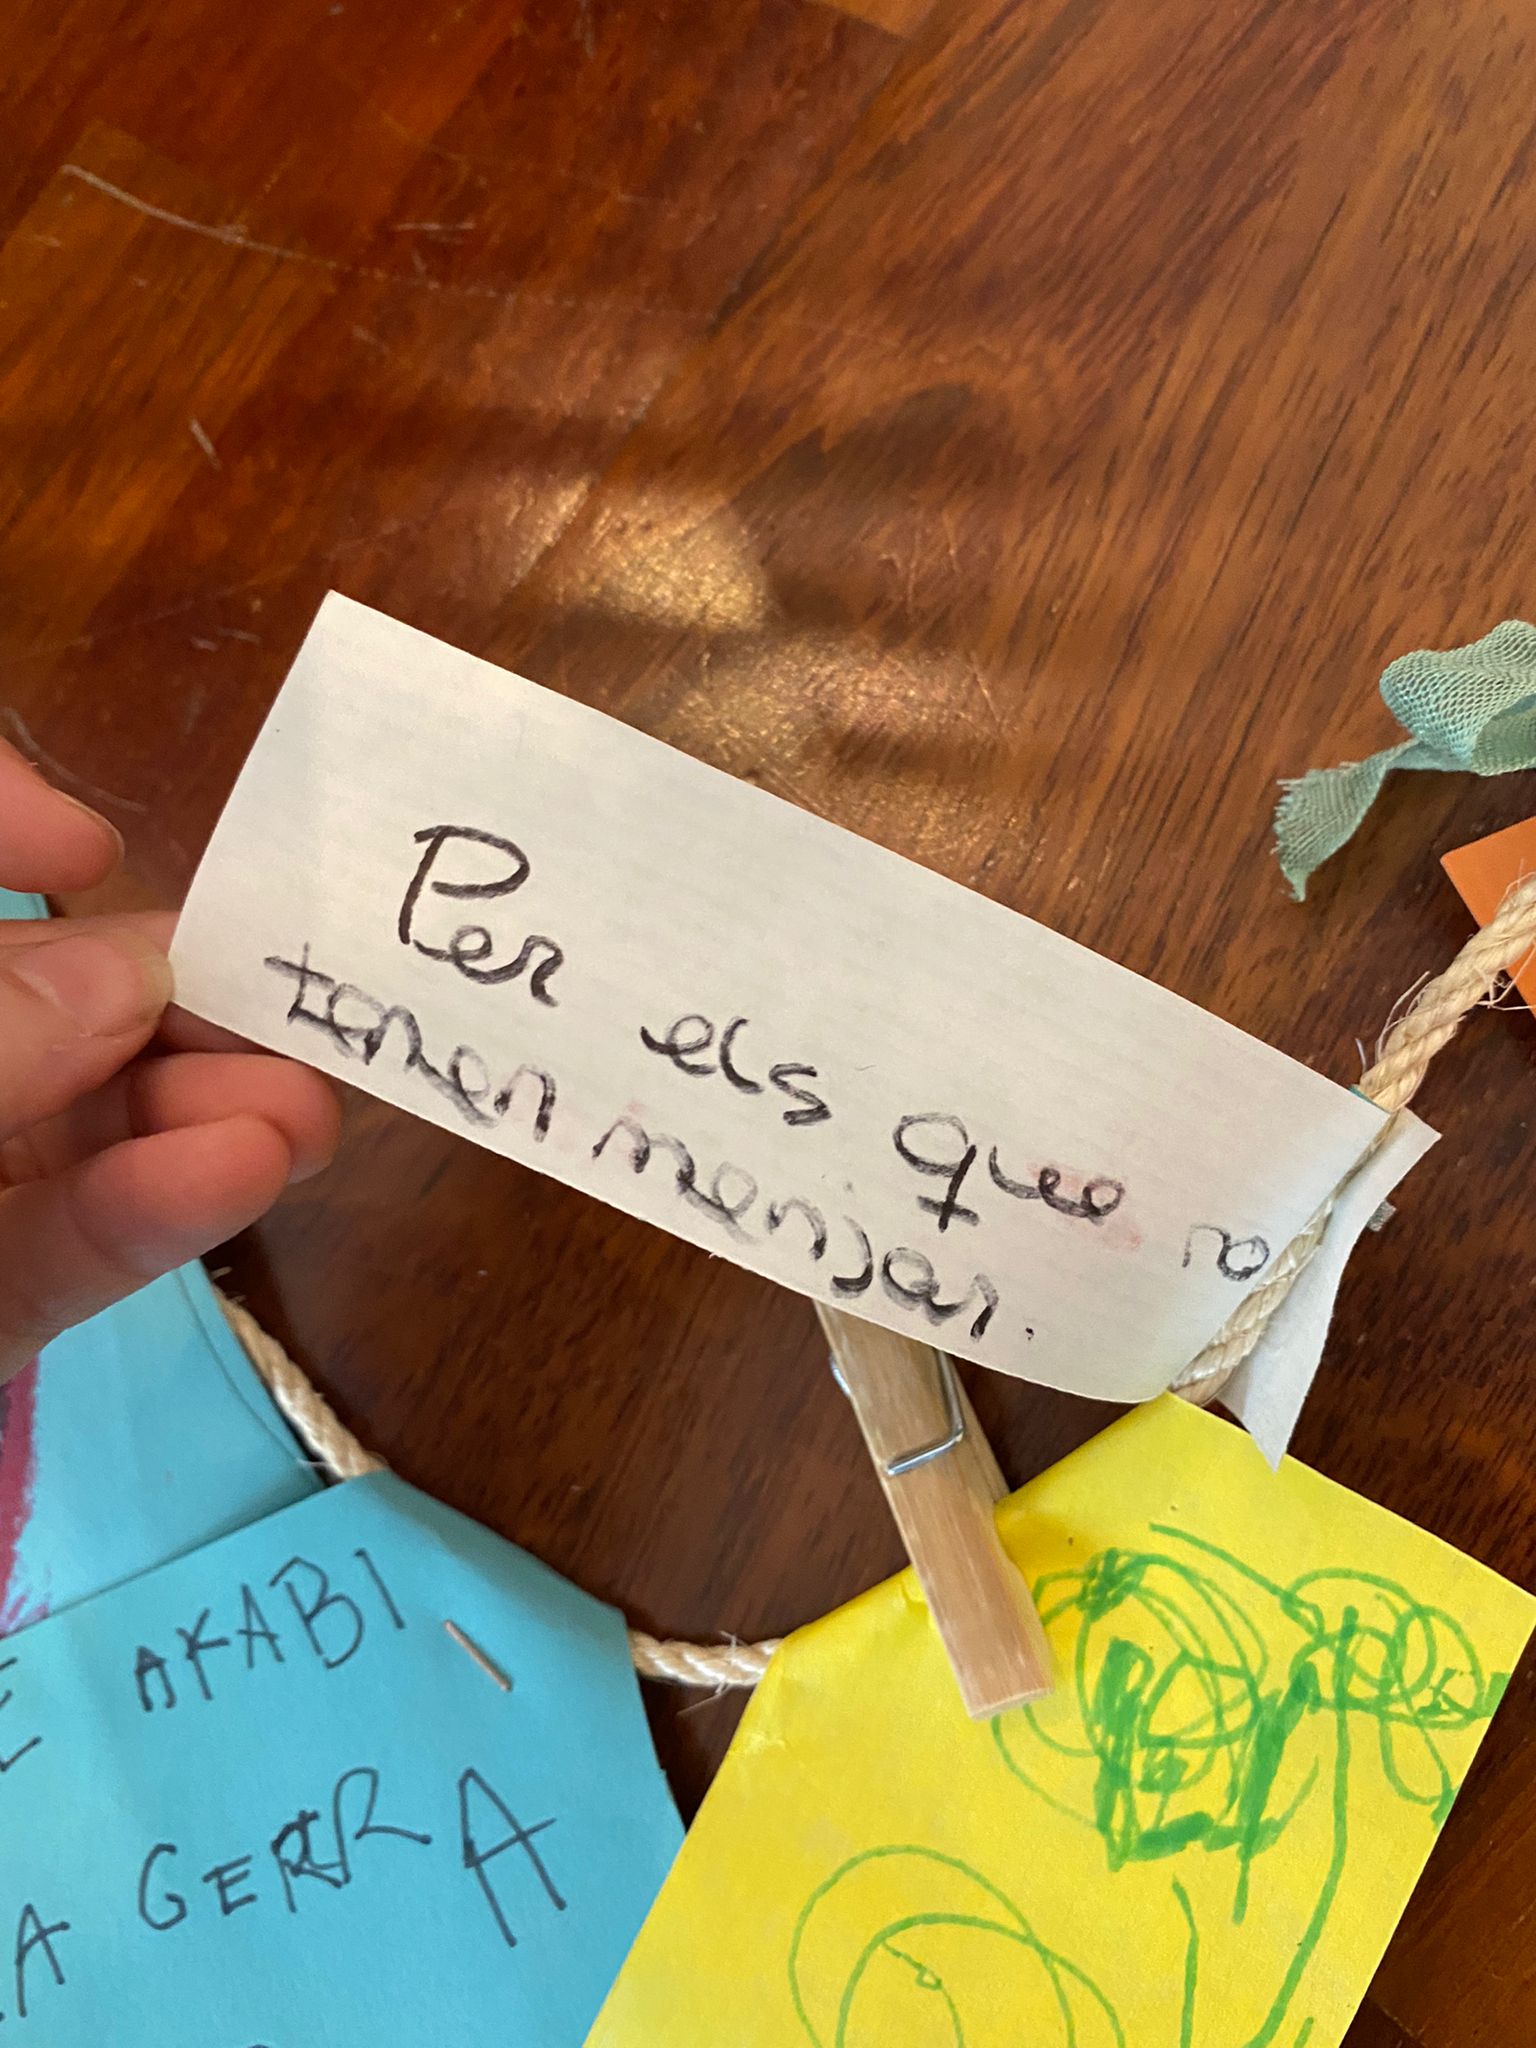 Per els que no
tenen menjar.
E AKABI
LA GERRA